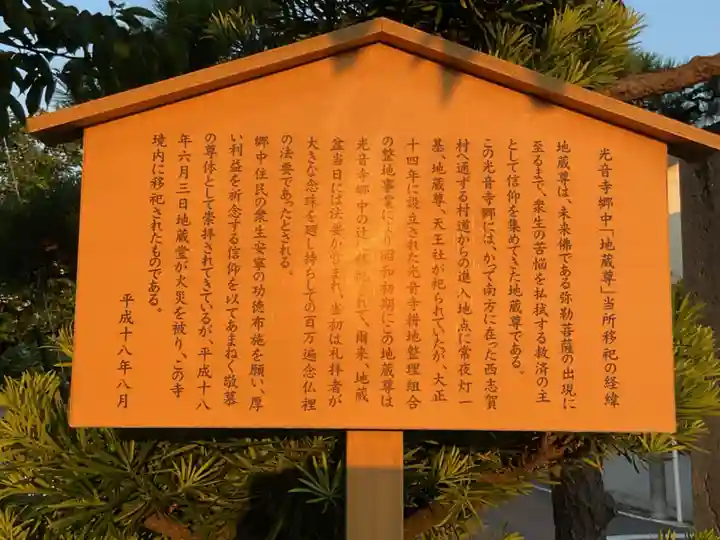 光音寺郷中「地蔵尊」当所移祀の経緯
地蔵尊は、未来佛である弥勒菩薩の出現に
至るまで、衆生の苦悩を払拭する救済の主
として信仰を集めてきた地蔵尊である。
この光音寺郷には、かつて南方に在った西志賀
村へ通ずる村道からの進入地点に常夜灯一
基、地蔵尊、天王社が祀られていたが、大正
十四年に設立された光音寺耕地整理組合
の整地事業により昭和初期にこの地蔵尊は
光音寺郷中の辻に移祀されて、爾来、地蔵
盆当日には法要が営まれ、当初は礼拝者が
大きな念珠を廻し持らしての百万遍念仏裡
の法要であったとされる。
郷中住民の衆生安寧の功徳布施を願い、厚
い利益を祈念する信仰を以てあまねく敬慕
の尊体として崇拝されてきているが、平成十八
年六月三日地蔵堂が火災を被り、この寺
境内に移祀されたものである。
平成十八年八月